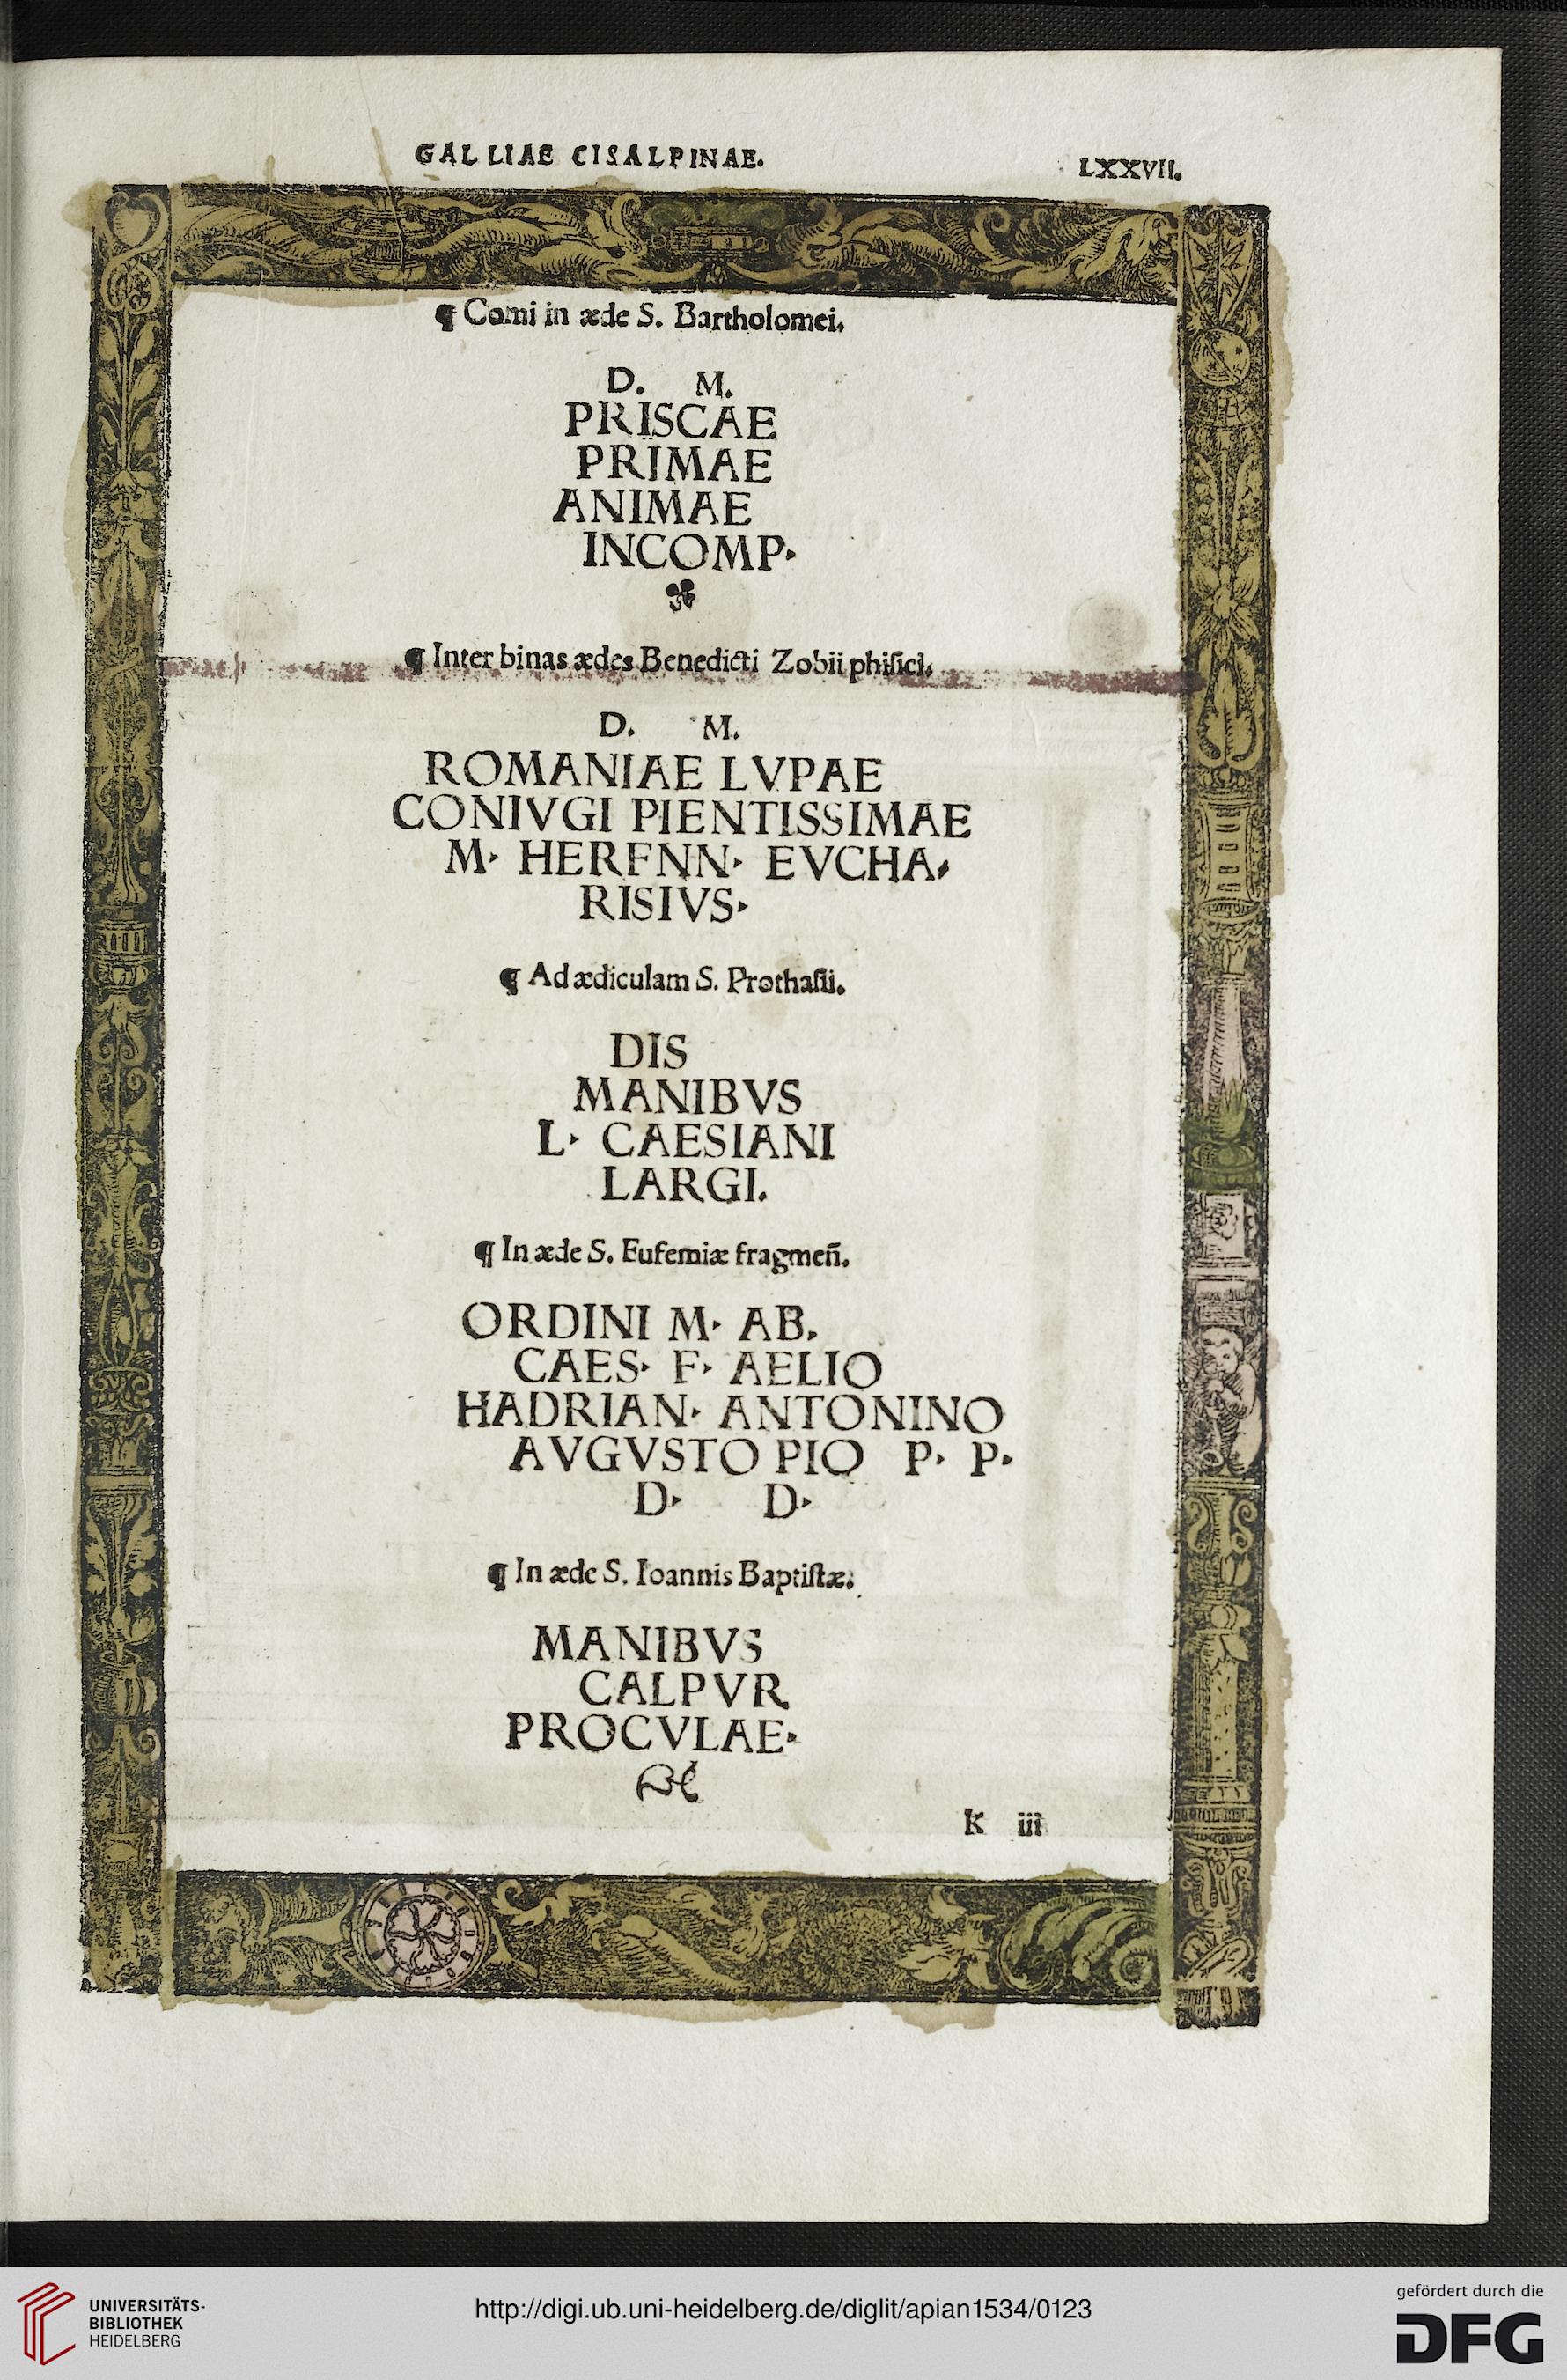 GALLIAE CISALPINAE. LXXVII.
¶ Comi in æde S. Bartholomei.
D. M.
PRISCAE
PRIMAE
ANIMAE
INCOMP.
¶ Inter binas ædes Benedicti Zobii phiſici.
D. M.
ROMANIAE LVPAE
CONIVGI PIENTISSIMAE
M. HERENN. EVCHA.
RISIVS.
¶ Ad ædiculam S. Prothaſii.
DIS
MANIBVS
L. CAESIANI
LARGI.
¶ In æde S. Eufemiæ fragmeñ.
ORDINI M. AB.
CAES. F. AELIO
HADRIAN. ANTONINO
AVGVSTO PIO P. P.
D. D.
¶ In æde S. Ioannis Baptiſtæ.
MANIBVS
CALPVR
PROCVLAE.
K iii
UNIVERSITÄTS-
BIBLIOTHEK
HEIDELBERG
http://digi.ub.uni-heidelberg.de/diglit/apian1534/0123
gefördert durch die
DFG